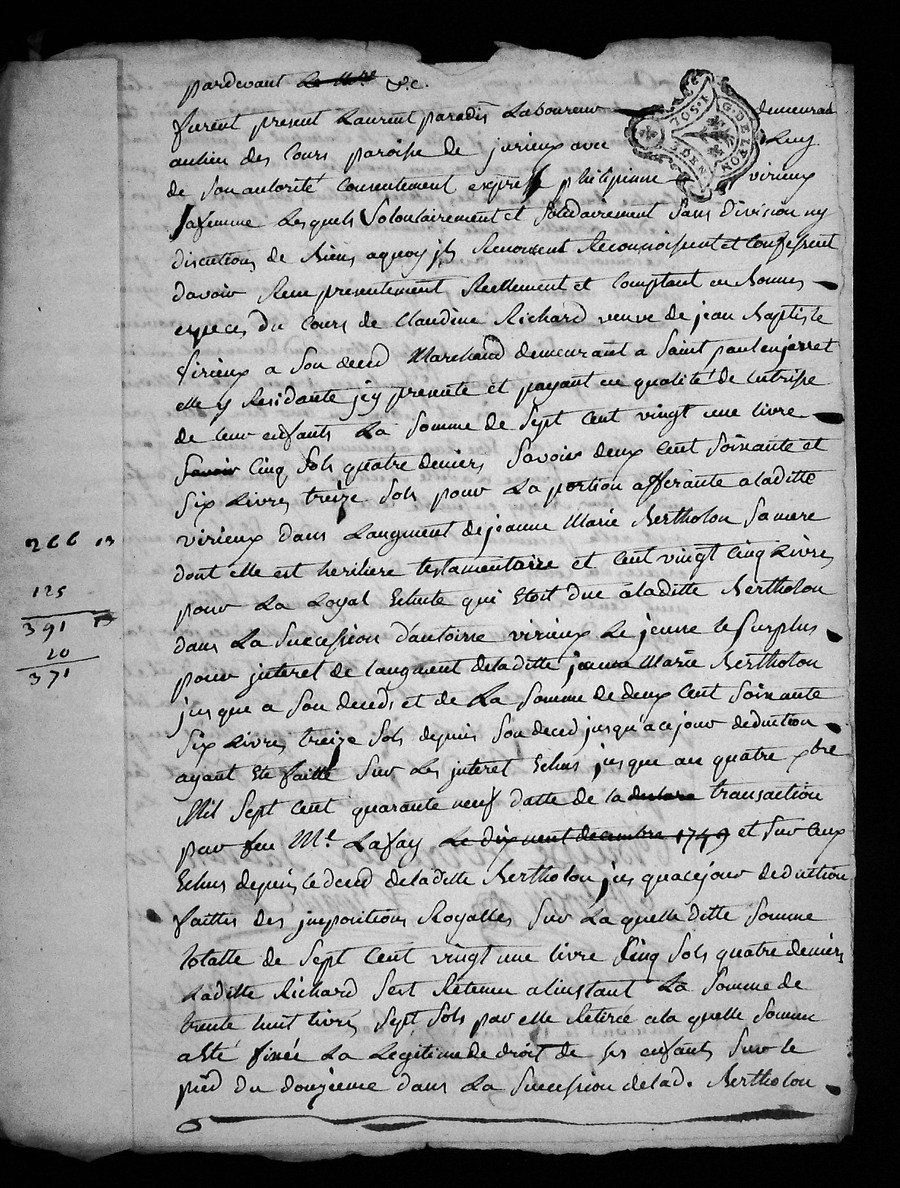 pardevant ~~Le Nre~~ &c.
furent present Laurent paradis Laboureur demeurant
aulieu des Cours paroisse de jurieux avec Luy
de son autorité Consentement exprès philipinne virieux
safemme Lesquels Volontairement et solidairement sans division ny
discution de biens aquoy ils Renoncent Reconnoissent et Confessent
davoir Recu presentement Reellement et Comptant en Bonnes
especes du Cours de Claudine Richard veuve de jean Baptiste
Virieux a Son deced Marchand demeurant a Saint paul en jarret
elle y Residante jcy presente et payant en qualité de tutrisse
de leur enfants La Somme de Sept Cent vingt une livre
~~Savoir~~ Cinq Sols quatre deniers Savoir deux Cent Soixante et
Six Livres treize Sols pour La portion afferante aladitte
virieux dans Laugment de jeanne Marie Bertholon Samere
dont elle est heritiere testamentaire et Cent vingt Cinq Livres
pour La Loyal Echute qui Etoit due aladitte Bertholon
dans La Succession d'antoinne virieux Le jeune le Surplus
pour jnteret de laugment deladitte jeanne Marie Bertholon
jusque a Son deceds et de La Somme de deux Cent Soixante
Six Livres treize Sols depuis Son deced jusqu'a ce jour deduction
ayant Eté faitte Sur Les jnteret Echus jusque au quatre xbre
Mil Sept Cent quarante neuf datte de la transaction
par feu Me. Lafay ~~Le dix neuf decembre 1749~~ et Sur Ceux
Echus depuis le deced deladitte Bertholon jusquacejour deduction
faittes des jmpositions Royalles Sur La quelle ditte Somme
totalle de Sept Cent vingt une livre Cinq Sols quatre deniers
Laditte Richard Sest Retenu alinstant La Somme de
trente huit livres Sept Sols par elle Retiré ala quelle Somme
a Eté fixée La Legitime de droit de ses enfants Sur le
pied du douzieme dans La Succession delad. Bertholon
266 13
125
391 13
20
371
G. DE LYON